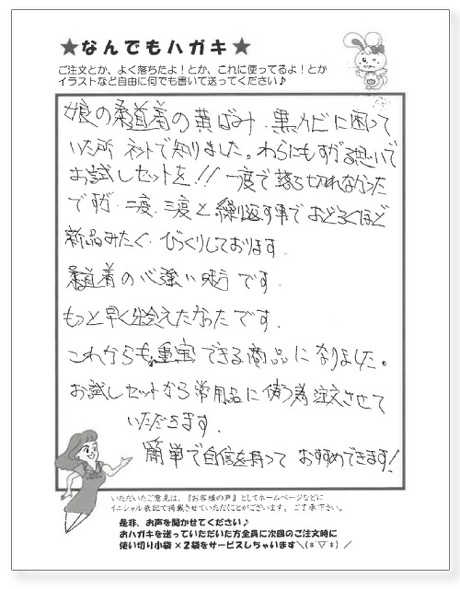 ★なんでもハガキ★
ご注文とか、よく落ちたよ！とか、これに使ってるよ！とか
イラストなど自由に何でも書いて送ってください♪
娘の柔道着の黄ばみ、黒カビに困って
いた所 ネットで知りました。わらにもすがる思いで
お試しセットを!! 一度で落ち切れなかった
ですが、二度、三度と繰り返す事でおどろくほど
新品みたく、びっくりしております。
柔道着の心強い味方です。
もっと早く出会えたかったです。
これからも重宝できる商品になりました。
お試しセットから常用品に使う為注文させて
いただきます。
簡単で自信を持って おすすめできます!
いただいたご意見は、『お客様の声』としてホームページなどに
イニシャル表記で掲載させていただくことがございます。ご了承下さい。
是非、お声を聞かせてください♪
おハガキを送っていただいた方全員に次回のご注文時に
使い切り小袋×2袋をサービスしちゃいます＼(*´▽`*)／